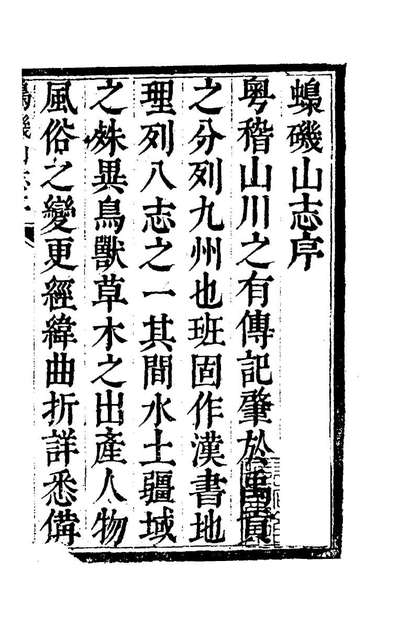 蟂磯山志序
粵稽山川之有傳記肇於禹貢
之分列九州也班固作漢書地
理列八志之一其間水土疆域
之殊異鳥獸草木之出產人物
風俗之變更經緯曲折詳悉備